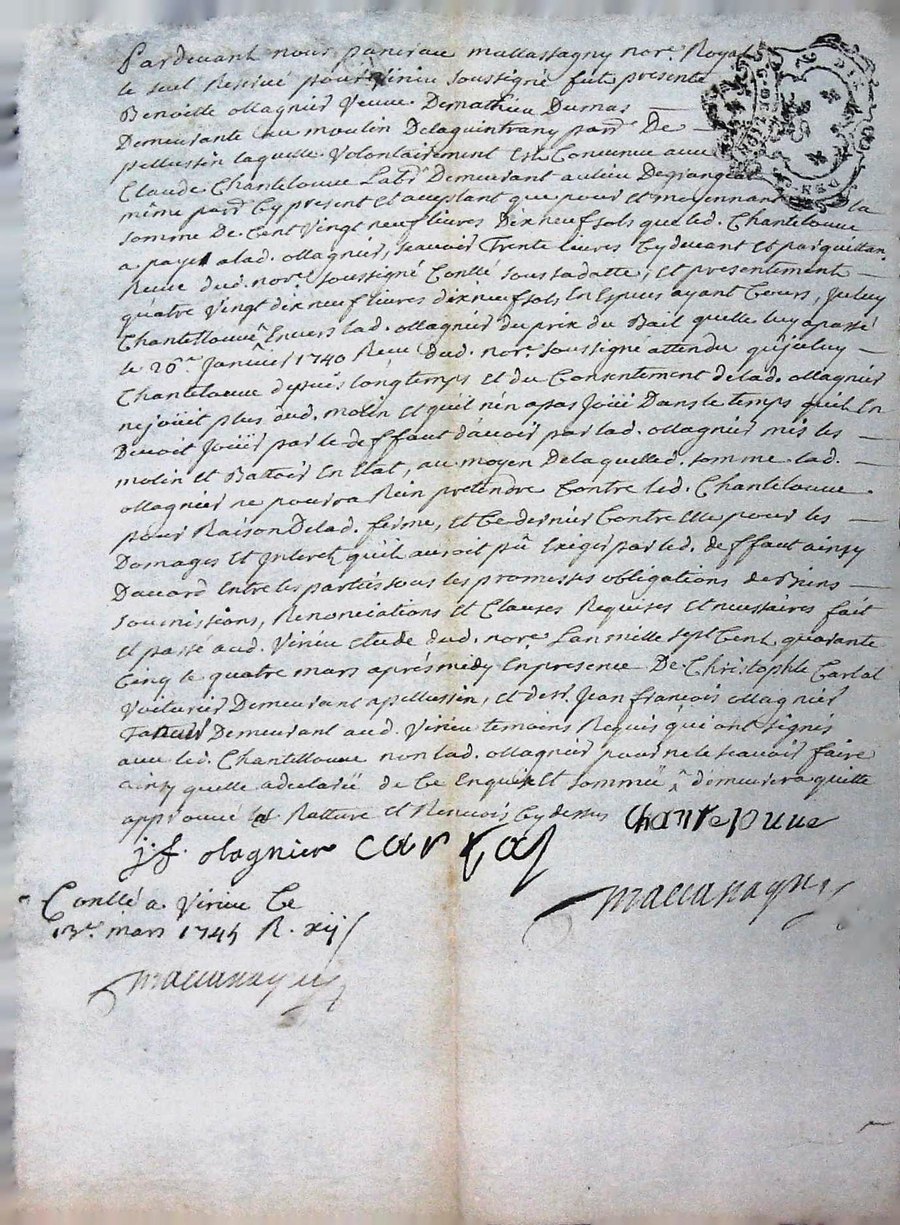 Pardevant nous pancrau mallassagny nore. Royal
le seul Reservé pour virieu soussigné fut presente
Benoitte ollagnier veuve Demathieu Dumas
Demeurante au moulin Delaquintrany parsse De
pellussin laquelle volontairement est Convenue avec
Claude Chantelouve Labr. Demeurant au lieu Degranges
même parsse Cy present et aceptant que pour et moyennant la
somme De Cent vingt neuf livres Dix neuf sols que led. Chantelouve
a payé a lad. ollagnier, scavoir Trente livres Cy devant et par quittan
Receue dud. nore. soussigné Contllé sous sa datte, et presentement
quatre vingt dix neuf livres dix neuf sols En Especes ayant Cours, Jceluy
Chantellouve Envers lad. ollagnier du prix du Bail quelle luy a passé
le 20e. Janvier 1740 Receu Dud. nore. soussigné attendu qu'jceluy
Chantelouve depuis longtemps et du Consentement de lad. ollagnier
ne joüit plus dud. molin et quil n'en a pas Joüi Dans le temps quil En
Devoit Joüir par le deffaut d'avoir par lad. ollagnier mis les
molin et Battoir En Etat, au moyen De laquelle d. somme lad.
ollagnier ne pourra Rien pretendre Contre led. Chantelouve
pour Raison De lad. ferme, et Ce dernier Contre Elle pour les
Domages et Interets quil auroit pû Exiger par led. deffaut ainsy
D'acord Entre les parties sous les promesses obligations de Biens
soumissions, Renonciations et Clauses Requises et necessaires fait
et passé aud. Virieu Etude dud. nore. L'an mille sept Cent quarante
Cinq le quatre mars aprés midy En presence De Christophle Cartal
voiturier Demeurant a pellussin, et de sr. Jean françois ollagnier
Demeurant aud. Virieu temoins Requis qui ont signés
avec led. Chantellouve non lad. ollagnier pour ne le scavoir faire
ainsy quelle a declaré de Ce Enquise et sommée ^ demeurera quitte
approuvé la Rature et Renvois Cy dessus Chantelouve
j. f. olagnier Cartal
maccanagny
Contllé a Virieu Ce
13e. mars 1745 R. xij s
maccanagny